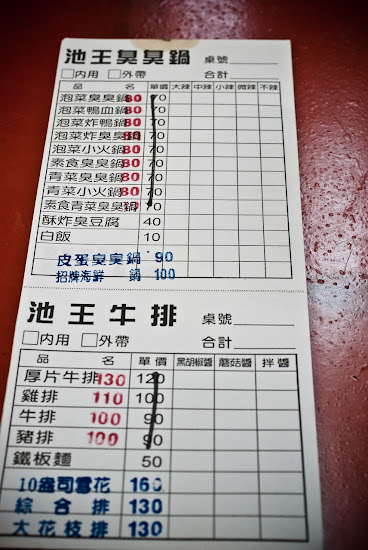 池王臭臭鍋 桌號
□內用 □外帶 合計
品 名 單價 大辣 中辣 小辣 微辣 不辣
泡菜臭臭鍋 80 70
泡菜鴨血鍋 80 70
泡菜炸鴨鍋 80 70
泡菜炸臭臭鍋 80 70
泡菜小火鍋 80 70
素食臭臭鍋 80 70
青菜臭臭鍋 80 70
青菜小火鍋 80 70
素食青菜臭臭鍋 70
酥炸臭豆腐 40
白飯 10
皮蛋臭臭鍋 90
招牌海鮮 鍋 100
池王牛排 桌號
□內用 □外帶 合計
品 名 單價 黑胡椒醬 蘑菇醬 拌醬
厚片牛排 130 120
雞排 110 100
牛排 100 90
豬排 100 90
鐵板麵 50
10盎司雪花 160
綜合排 130
大花枝排 130